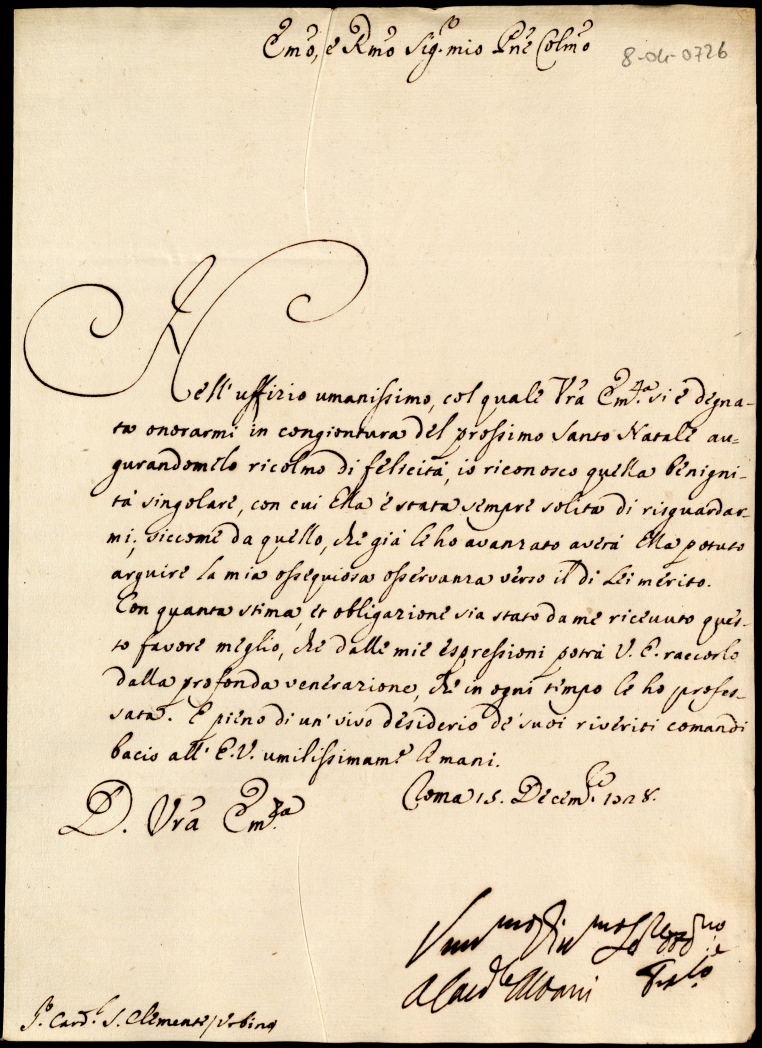 Em̃o, e Rm̃o Sig.r mio Pñe Colm̃o
8-04-0726
Nell' uffizio umanissimo, col quale Vrã Em.za si è degna-
ta onorarmi in congiontura del prossimo Santo Natale au=
gurandomelo ricolmo di felicità, io riconosco quella benigni-
tà singolare, con cui Ella è stata sempre solita di risguardar-
mi; siccome da quello, che già le ho avanzato averà Ella potuto
arguire la mia ossequiosa osservanza verso il di Lei merito.
Con quanta stima, et obligazione sia stato da me ricevuto ques-
to favore meglio, che dalle mie espressioni potrà V. E. raccorlo
dalla profonda venerazione, che in ogni tempo le ho profes-
sata. E pieno di un' vivo desiderio de' suoi riveriti comandi
bacio all' E.V. umilissimam.e le mani.
D. Vrã Em.za
Roma 15. Decem.re 1728.
A Card.le Albani
S.r Card.l S. Clemente / Urbino